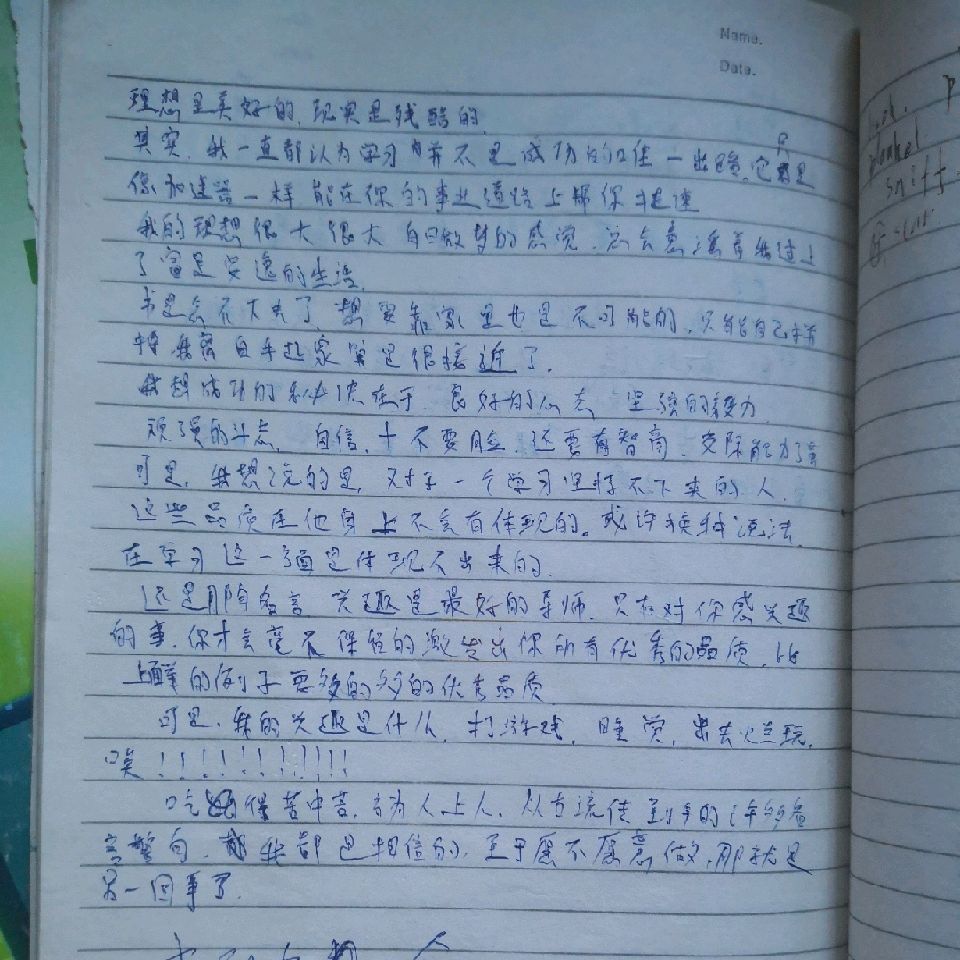 Name.
Date.
理想是美好的,现实是残酷的,
其实,我一直都认为学习并不是成功的唯一出路,它只是
像加速器一样能在你的事业道路上帮你提速
我的理想很大很大 白日做梦的感觉,总会意淫着我过上
了富足安逸的生活,
书是念不下去了,想要靠家里也是不可能的,只能自己
我离白手起家算是很接近了,
我想成功的秘诀在于,良好的心态 坚强的毅力
顽强的斗志,自信,十不要脸,还要有智商,交际能力
可是,我想说的是,对于一个学习坚持不下来的人,
这些品质在他身上不会有体现的。或许换种说法,
在学习这一方面是体现不出来的,
还是那句名言 兴趣是最好的导师,只有对你感兴趣
的事,你才会毫不保留的激发出你所有优秀的品质,比
上面的例子要多的多的优秀品质,
可是,我的兴趣是什么,打游戏,睡觉,出去吃喝玩,
唉!!!!!!!!!!!
吃得苦中苦,方为人上人,从古流传到今的许多名
言警句,我都是相信的,至于愿不愿意做,那就是
另一回事了,
sniff
scar